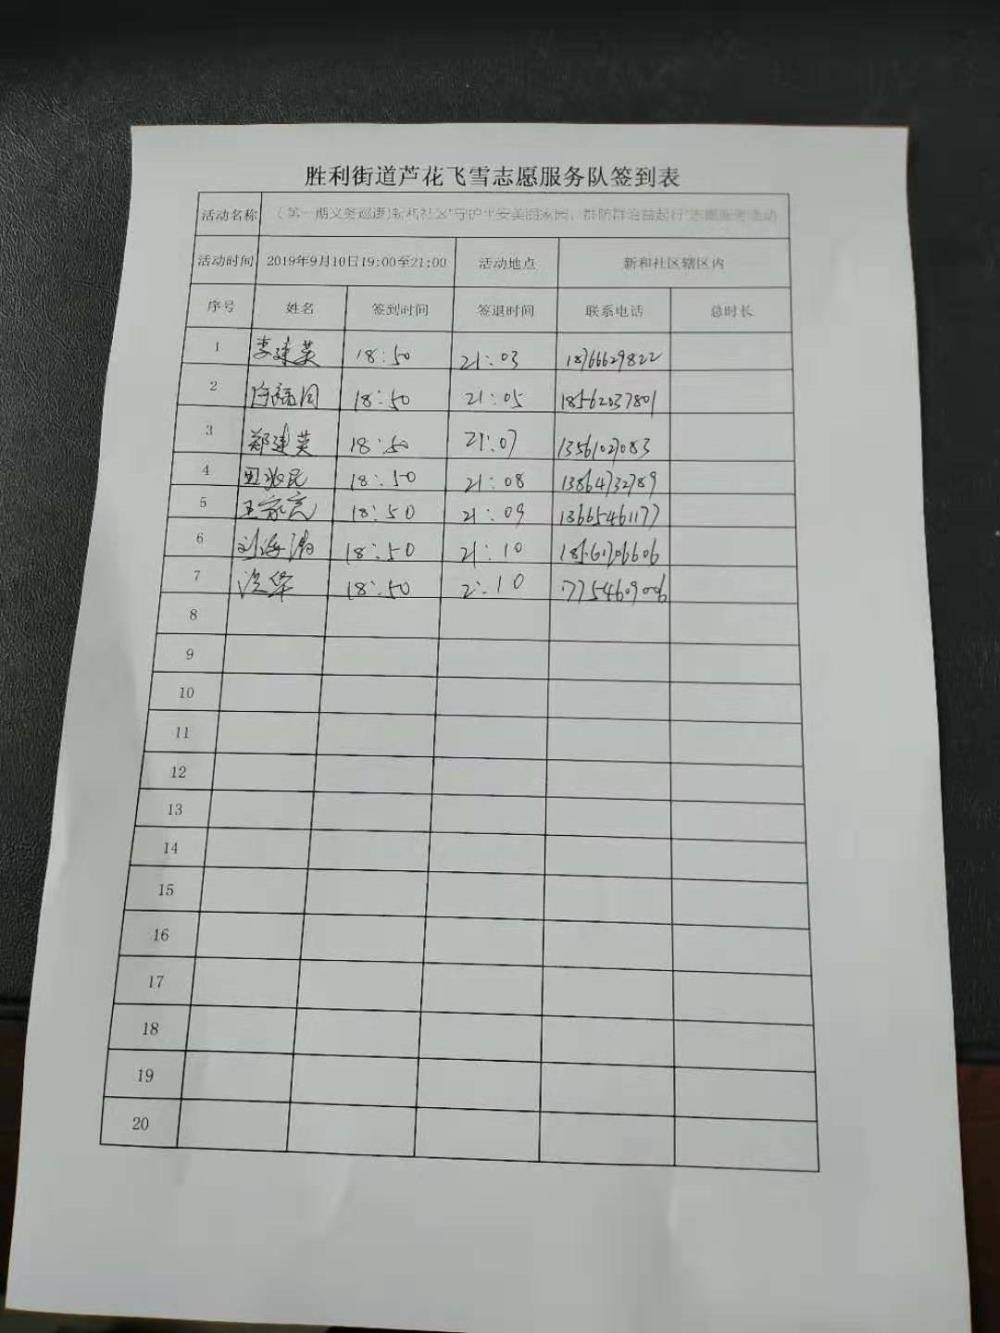 胜利街道芦花飞雪志愿服务队签到表
活动名称 (第一期义务巡逻)新和社区"守护平安美丽家园，群防群治益起行"志愿服务活动
活动时间 2019年9月10日19:00至21:00 活动地点 新和社区辖区内
序号 姓名 签到时间 签退时间 联系电话 总时长
1 李建英 18:50 21:03 18766629822
2 18:50 21:05 18562037801
3 郑建英 18:50 21:07 13561027083
4 18:50 21:08 13864732789
5 王家亮 18:50 21:09 13665461177
6 18:50 21:10
7 18:50 2:10
8
9
10
11
12
13
14
15
16
17
18
19
20